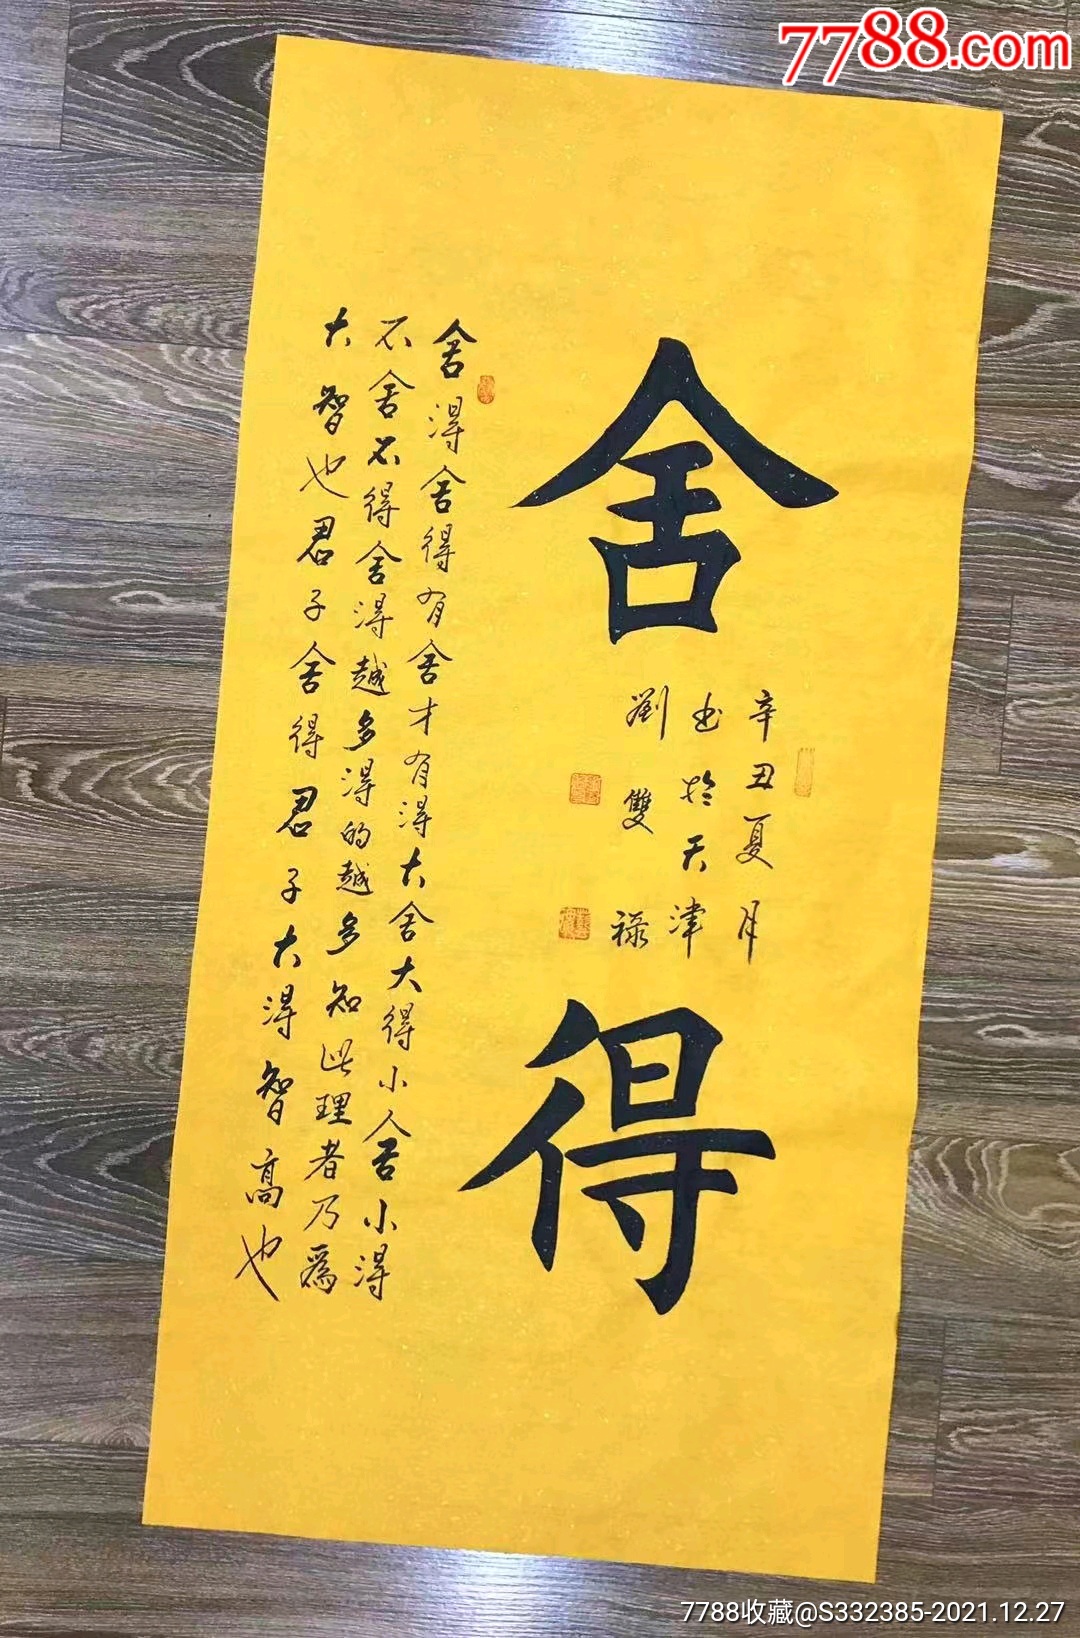 7788.com
舍得
辛丑夏月
书於天津
劉雙禄
舍得舍得有舍才有得大舍大得小舍小得
不舍不得舍得越多得的越多知此理者乃爲
大智也君子舍得君子大得智高也
7788收藏@S332385-2021.12.27